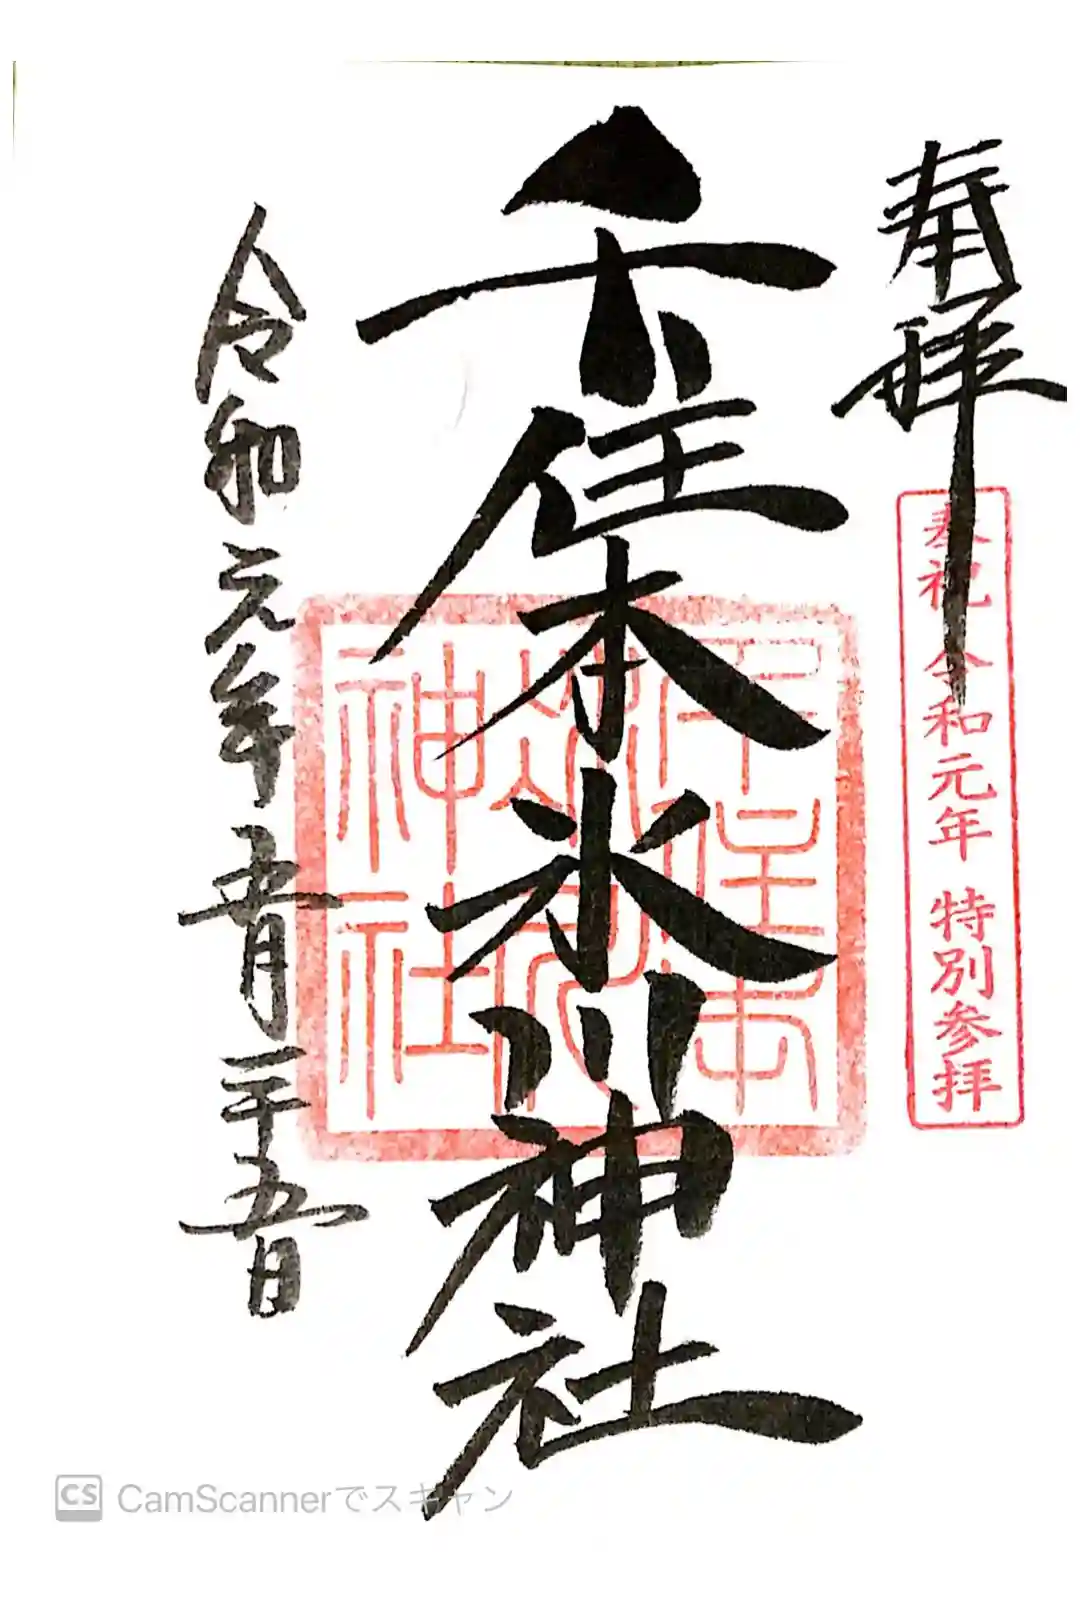 奉拝
奉祝 令和元年 特別参拝
千住本氷川神社
千住本
氷川
神社
令和元年五月二十五日
CamScannerでスキャン